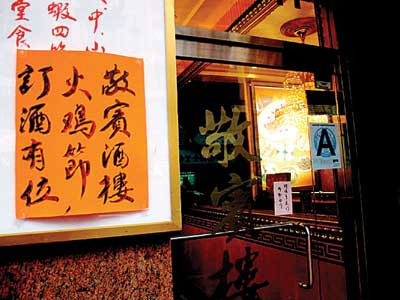 敬賓酒樓
火鸡節，
訂酒有位
中.小
蝦四
堂食
敬賓樓
A